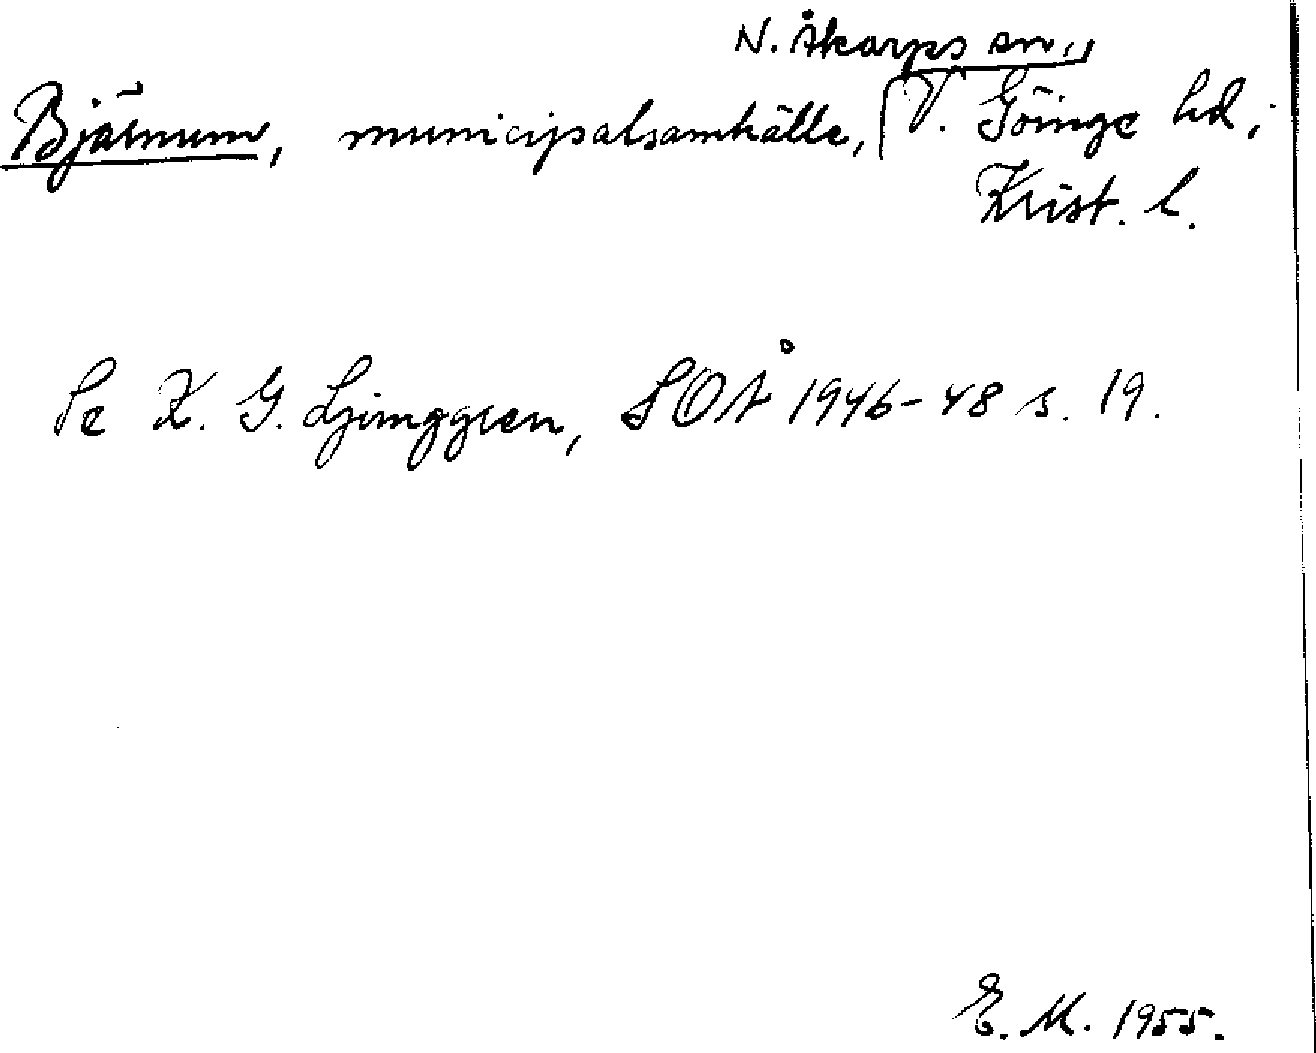 N. Åkarps sn,
Bjärnum, municipalsamhälle, V. Göinge hd,
Krist. l.
Se K. G. Ljunggren, SOÅ 1946-48 s. 19.
E. M. 1955.